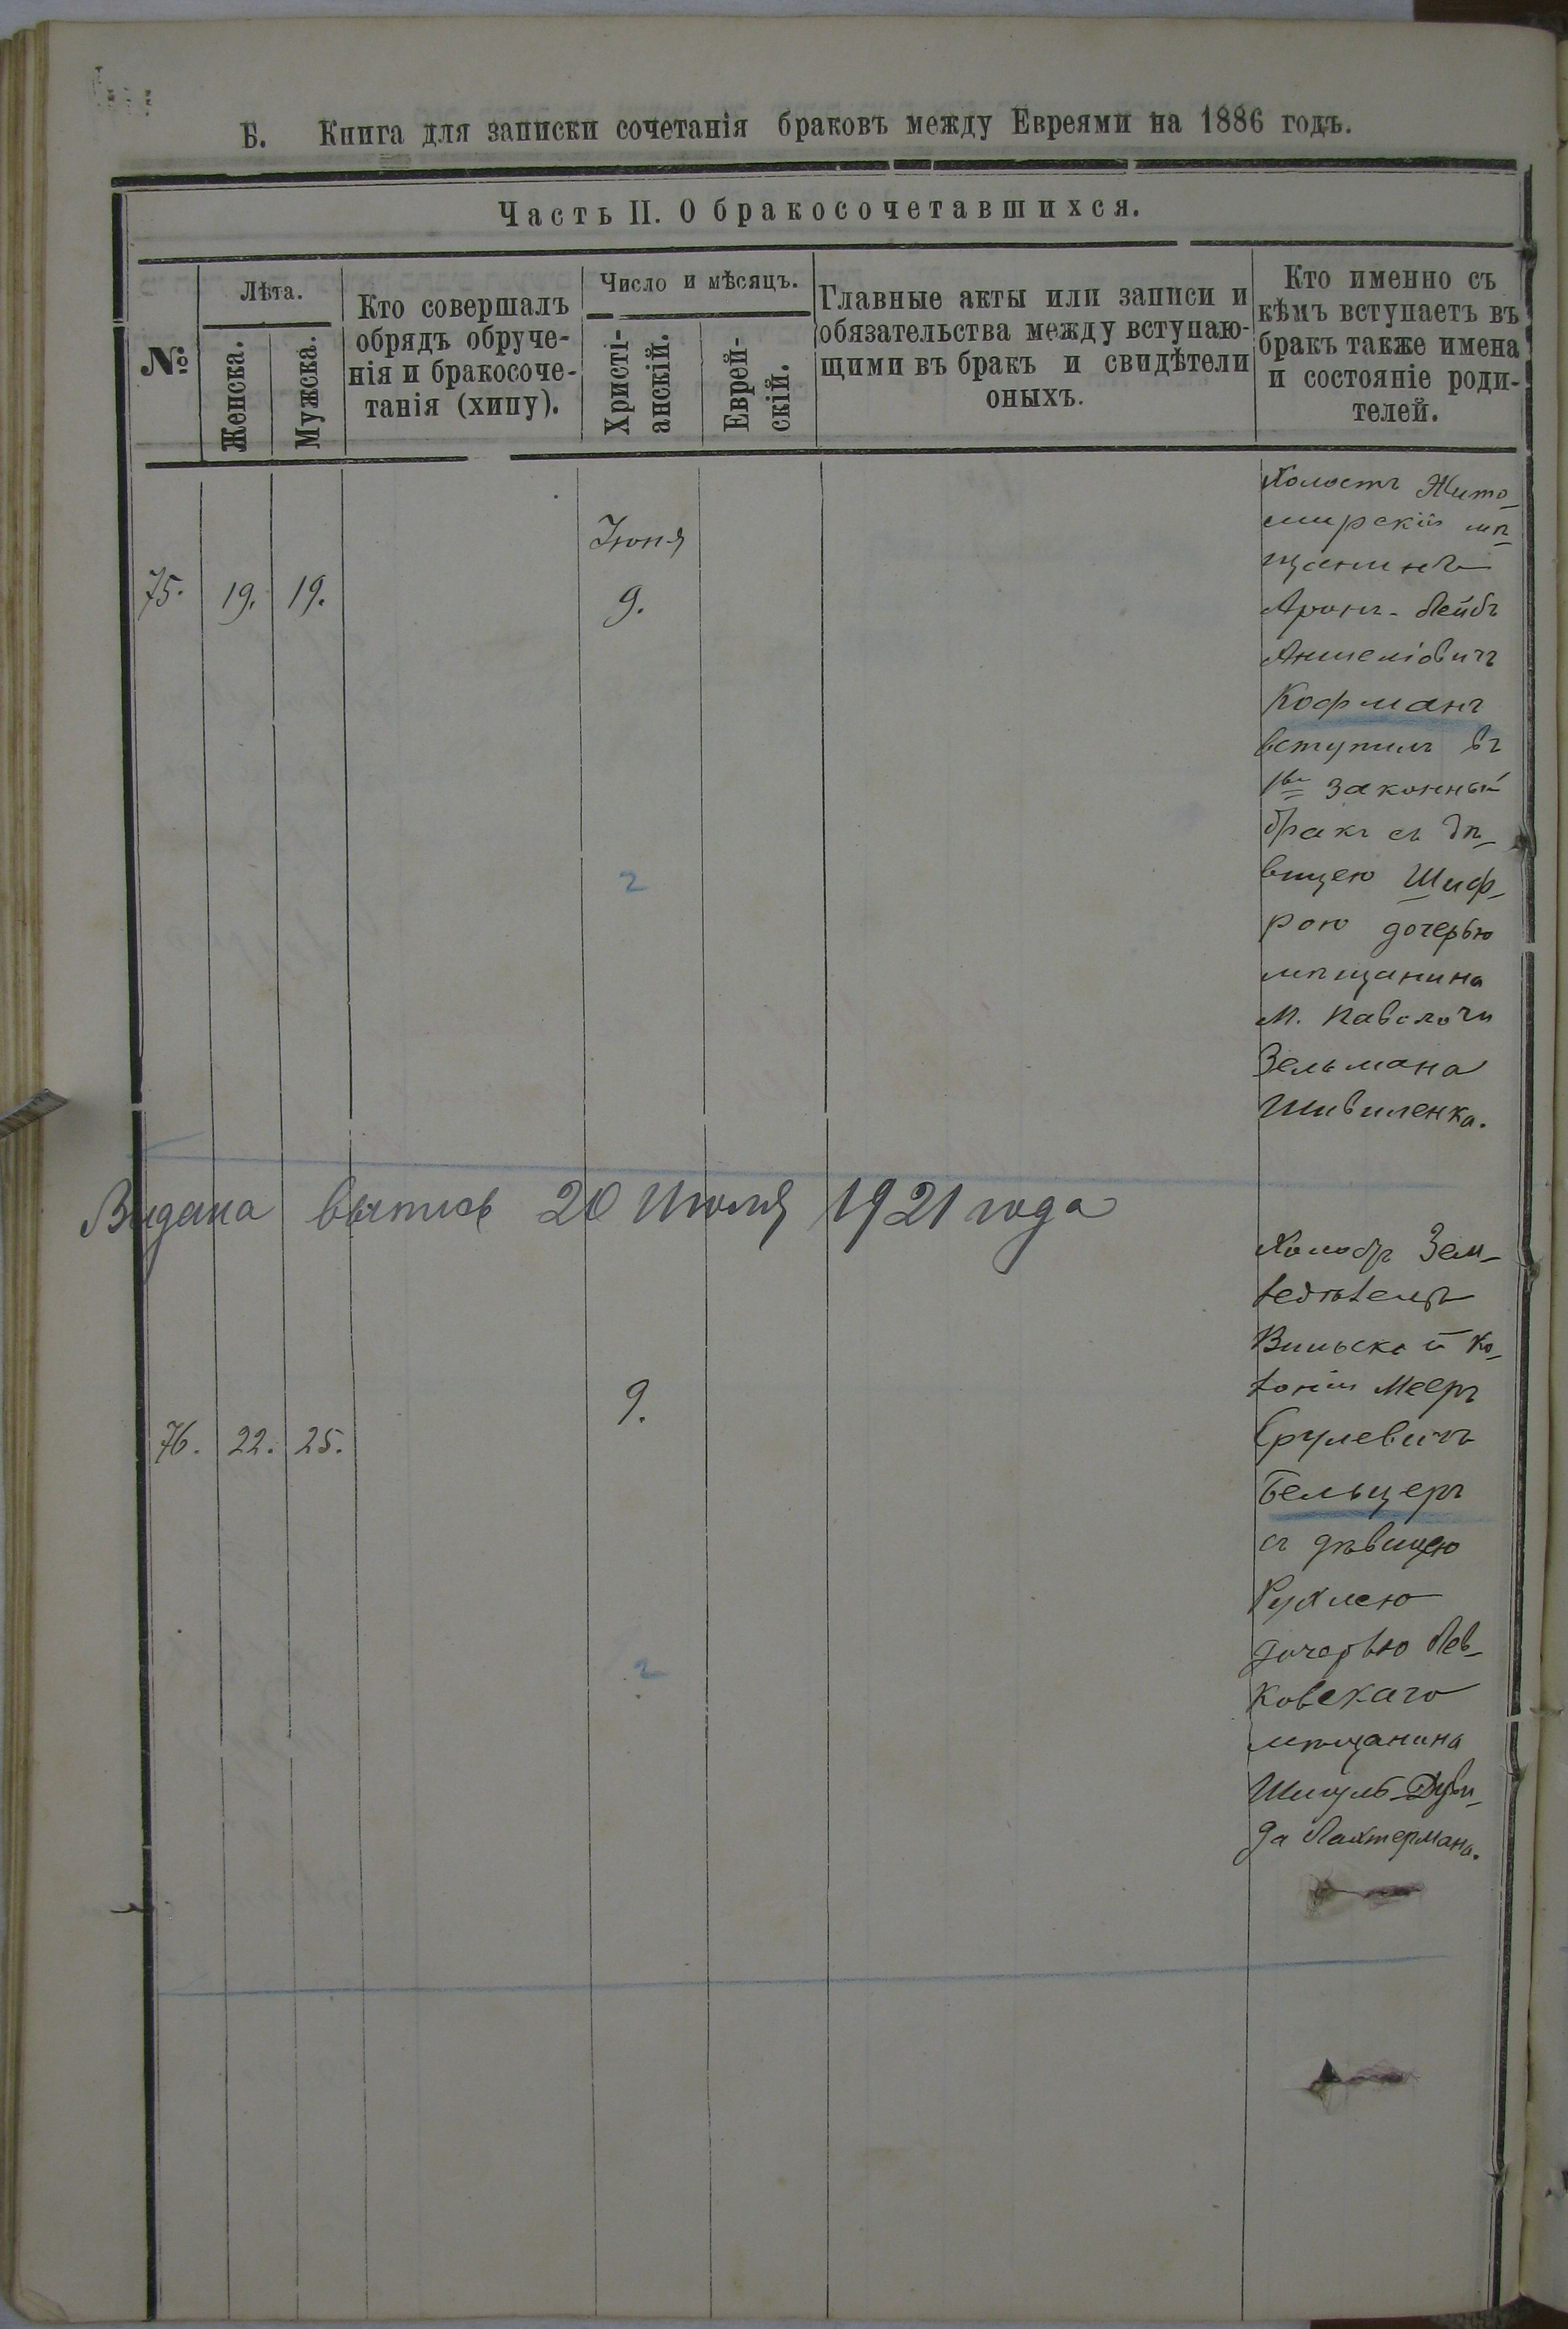 Б. Книга для записки сочетанія браковъ между Евреями на 1886 годъ.
Часть II. О бракосочетавшихся.
№
Лѣта.
Женска.
Мужска.
Кто совершалъ
обрядъ обруче-
нія и бракосоче-
танія (хипу).
Число и мѣсяцъ.
Христі-
анскій.
Еврей-
скій.
Главные акты или записи и
обязательства между вступаю-
щими въ бракъ и свидѣтели
оныхъ.
Кто именно съ
кѣмъ вступаетъ въ
бракъ также имена
и состояніе роди-
телей.
Іюня
75. 19. 19. 9.
Холостъ Жито-
мирскій мѣ-
щанинъ
Аронъ-Лейбъ
Аншеліовичъ
Кофманъ
вступилъ въ
1й законный
бракъ съ дѣ-
вицею Шиф-
рою дочерью
мѣщанина
м. Паволочи
Зельмана
Шивиленка.
2
Видана выпись 20 Июля 1921 года
76. 22. 25. 9.
Холостъ Зем-
ледѣлецъ
Вильской ко-
лоніи Мееръ
Срулевичъ
Бельцеръ
съ дѣвицею
Рухлею
дочерью Лев-
ковскаго
мѣщанина
Шмуль-Дуви-
да Лахтермана.
2